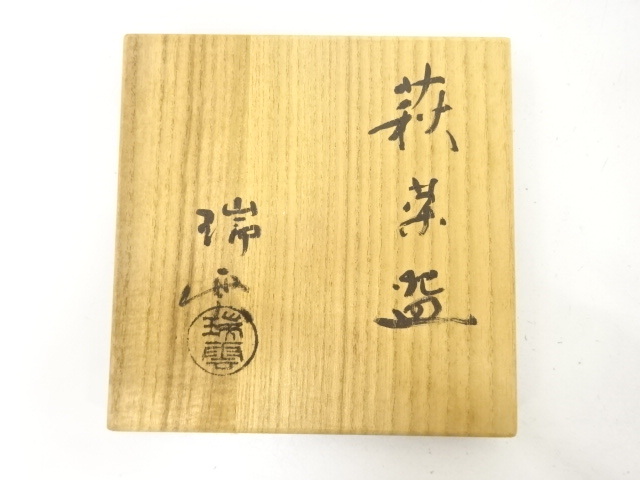 萩茶盌
瑞雲
瑞雲